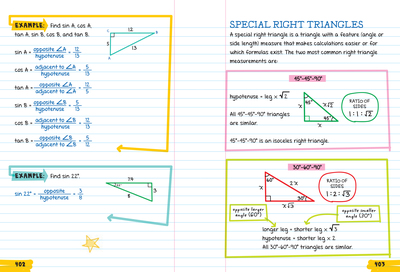 EXAMPLE: Find sin A, cos A,
tan A, sin B, cos B, and tan B.
12
5
13
sin A = opposite ∠A / hypotenuse = 12/13
cos A = adjacent to ∠A / hypotenuse = 5/13
tan A = opposite ∠A / adjacent to ∠A = 12/5
sin B = opposite ∠B / hypotenuse = 5/13
cos B = adjacent to ∠B / hypotenuse = 12/13
tan B = opposite ∠B / adjacent to ∠B = 5/12
EXAMPLE: Find sin 22°.
sin 22° = opposite / hypotenuse = 3/8
3
8
402
SPECIAL RIGHT TRIANGLES
A special right triangle is a triangle with a feature (angle or
side length) measure that makes calculations easier or for
which formulas exist. The two most common right triangle
measurements are:
45°-45°-90°
hypotenuse = leg × √2
All 45°-45°-90° triangles
are similar.
x
45°
x√2
45°
x
RATIO OF
SIDES
1 : 1 : √2
45°-45°-90° is an isosceles right triangle.
30°-60°-90°
60°
x
2x
30°
x√3
RATIO OF
SIDES
1 : 2 : √3
opposite longer
angle (60°)
opposite smaller
angle (30°)
longer leg = shorter leg × √3
hypotenuse = shorter leg × 2
All 30°-60°-90° triangles are similar.
403